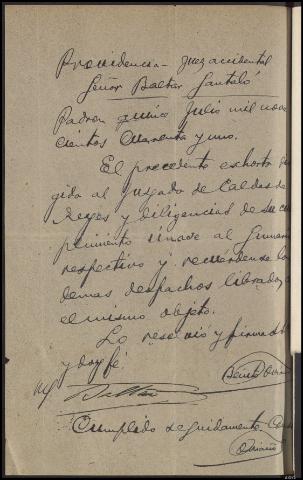 Providencia - Juez accidental
Señor Baltar Santaló
Padron quince Julio mil nove
cientos cuarenta y uno.
El precedente exhorto
gido al Juzgado de Caldas de
Reyes y diligencias de su cum
plimiento únase al sumario
respectivo y recuerdense lo
demas despachos librados
el mismo objeto.
Lo resolvió y firma
y doy fé.
Baltar
Cumplido seguidamente